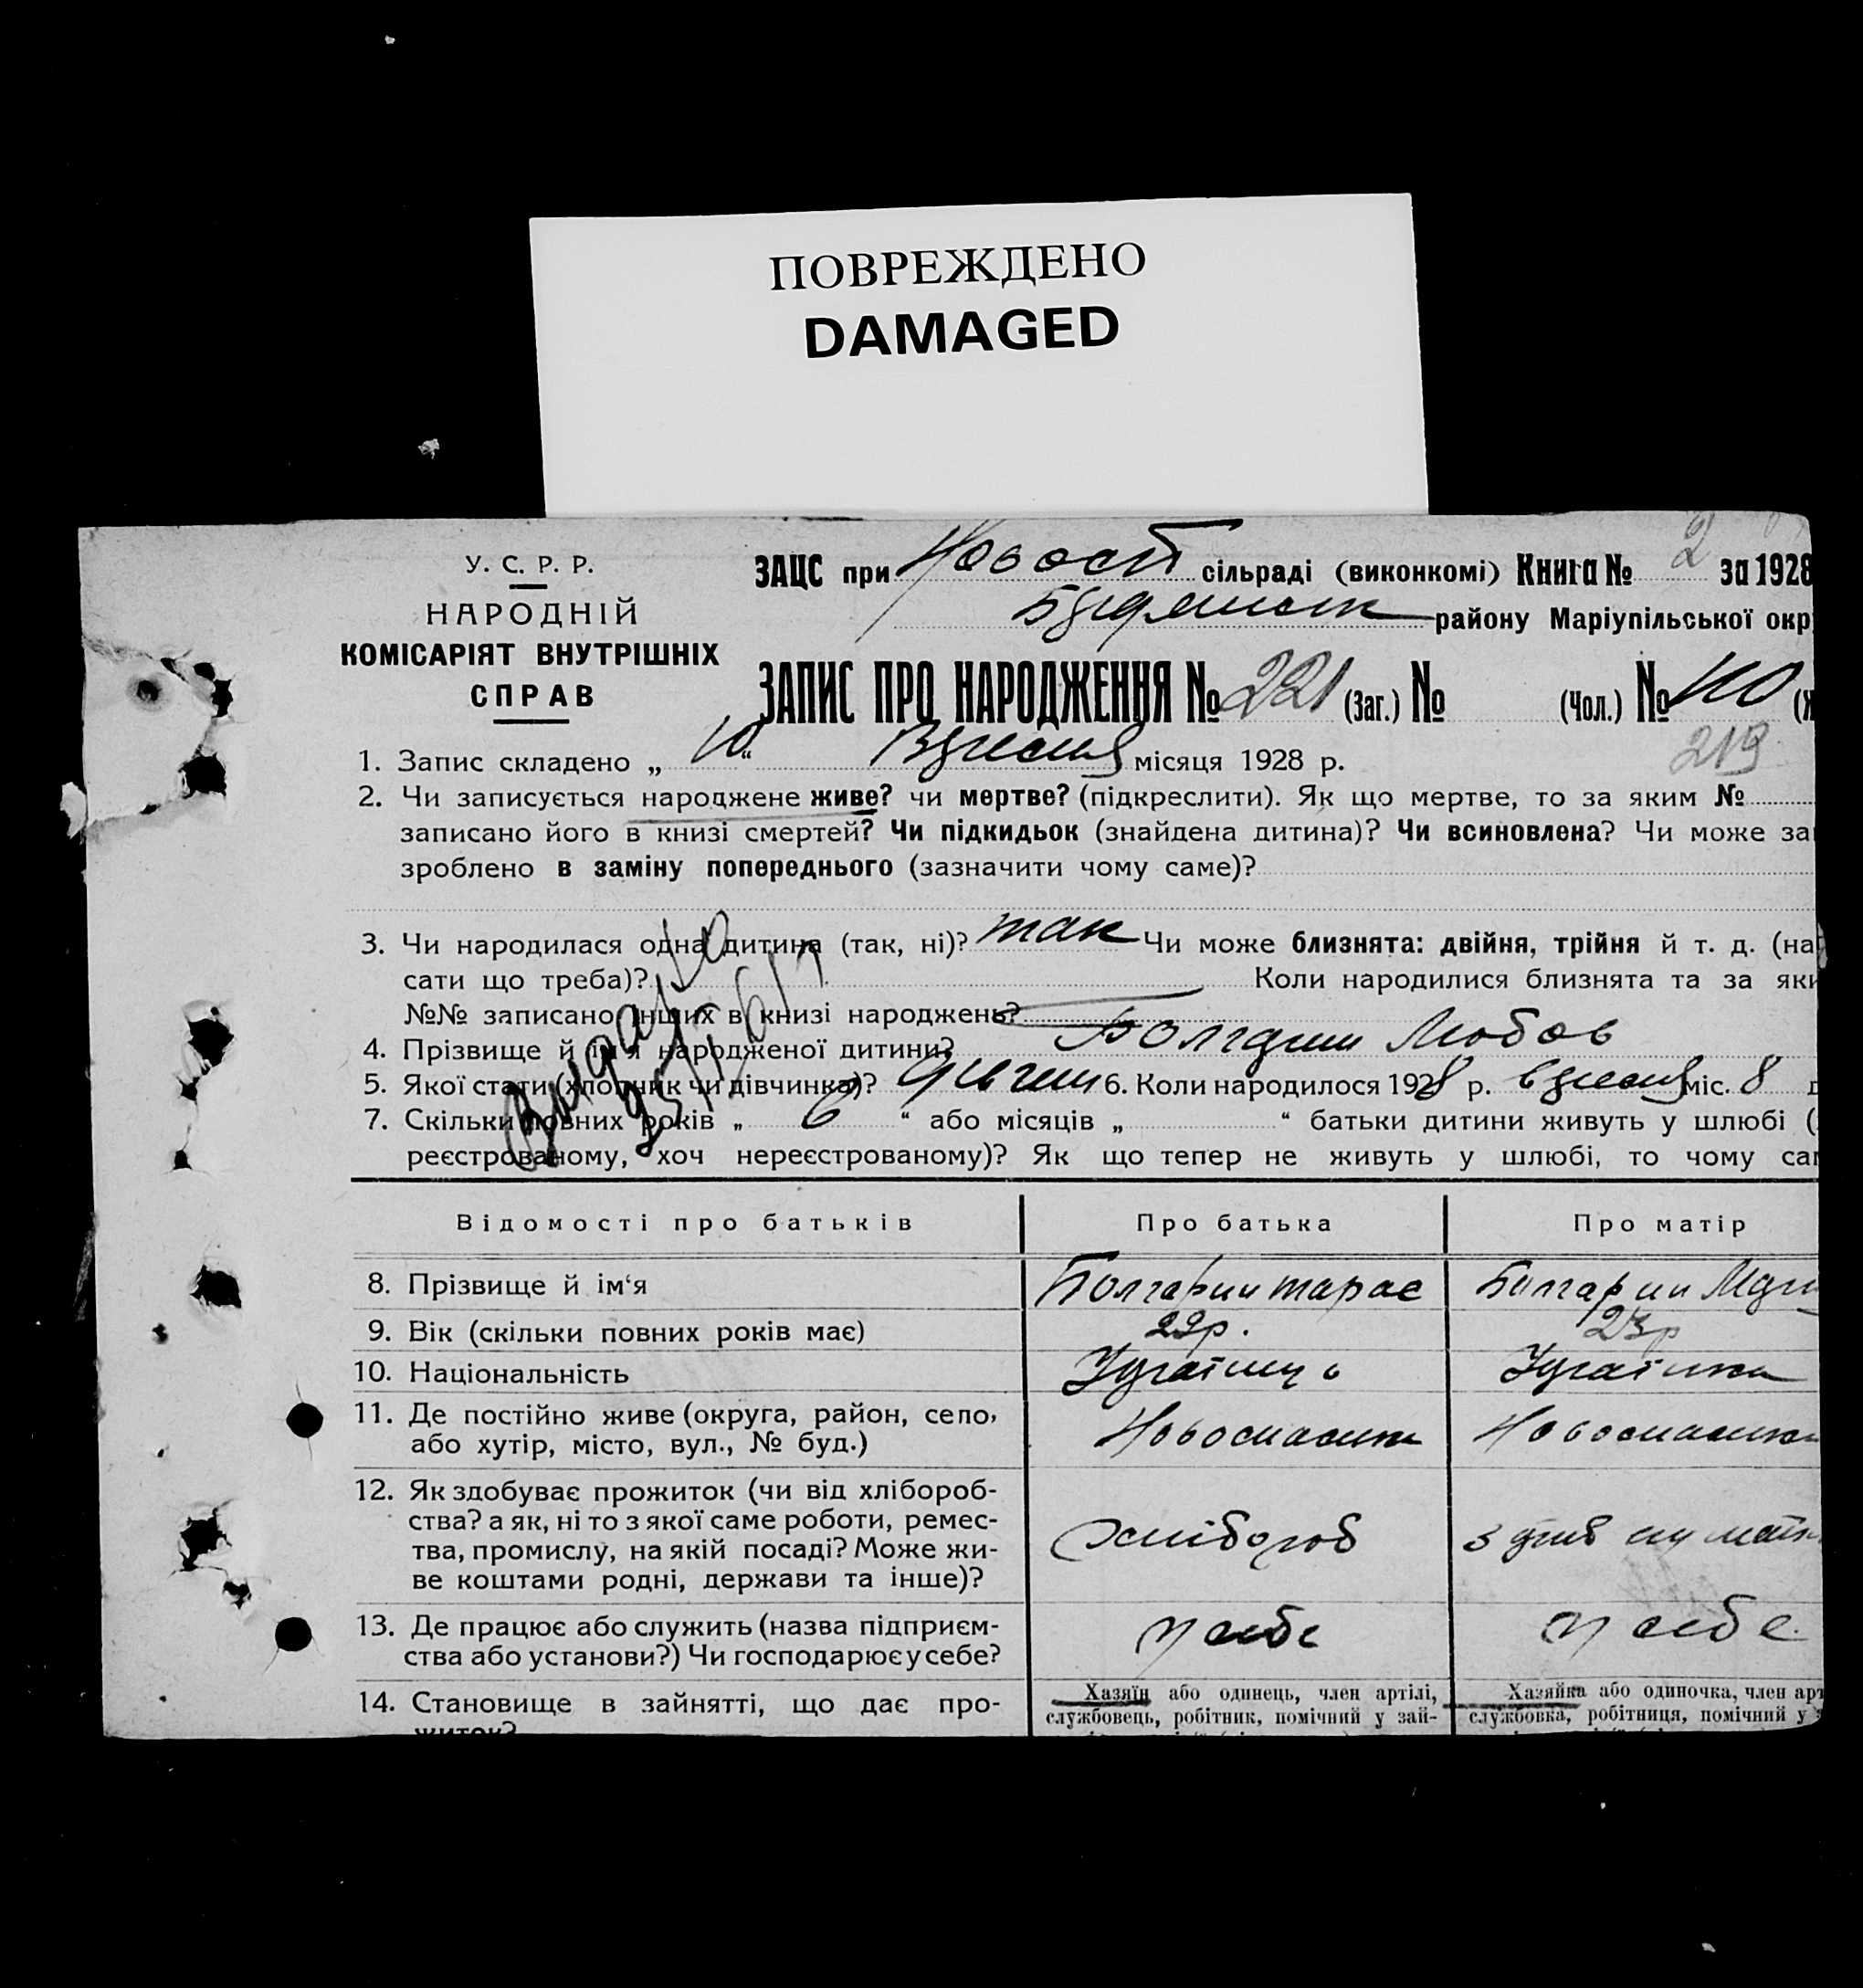 ПОВРЕЖДЕНО
DAMAGED
У. С. Р. Р.
НАРОДНІЙ
КОМІСАРІЯТ ВНУТРІШНІХ
СПРАВ
ЗАЦС при сільраді (виконкомі) Книга № 2 за 1928
району Маріупільської окр
ЗАПИС ПРО НАРОДЖЕННЯ № 221 (Заг.) № (Чол.) № 110 (Ж
219
1. Запис складено „ 10 “ Вересня місяця 1928 р.
2. Чи записується народжене живе? чи мертве? (підкреслити). Як що мертве, то за яким №
записано його в книзі смертей? Чи підкидьок (знайдена дитина)? Чи всиновлена? Чи може за
зроблено в заміну попереднього (зазначити чому саме)?
3. Чи народилася одна дитина (так, ні)? так Чи може близнята: двійня, трійня й т. д. (на
сати що треба)? Коли народилися близнята та за яки
№№ записано інших в книзі народжень?
4. Прізвище й ім'я народженої дитини? Болгарин Любов
5. Якої стати (хлопчик чи дівчинка)? 6. Коли народилося 1928 р. вересня міс. 8 д
7. Скільки повних років „ 6 “ або місяців „ “ батьки дитини живуть у шлюбі (
реєстрованому, хоч нереєстрованому)? Як що тепер не живуть у шлюбі, то чому са
Відомості про батьків
Про батька
Про матір
8. Прізвище й ім‘я
Болгарин Тарас
Болгарин
9. Вік (скільки повних років має)
23р
10. Національність
11. Де постійно живе (округа, район, село,
або хутір, місто, вул., № буд.)
12. Як здобуває прожиток (чи від хлібороб-
ства? а як, ні то з якої саме роботи, ремес-
тва, промислу, на якій посаді? Може жи-
ве коштами родні, держави та інше)?
хлібороб
13. Де працює або служить (назва підприєм-
ства або установи?) Чи господарює у себе?
у себе
у себе
14. Становище в зайнятті, що дає про-
житок?
Хазяїн або одинець, член артілі,
службовець, робітник, помічний у зай-
Хазяйка або одиночка, член арт
службовка, робітниця, помічний у з